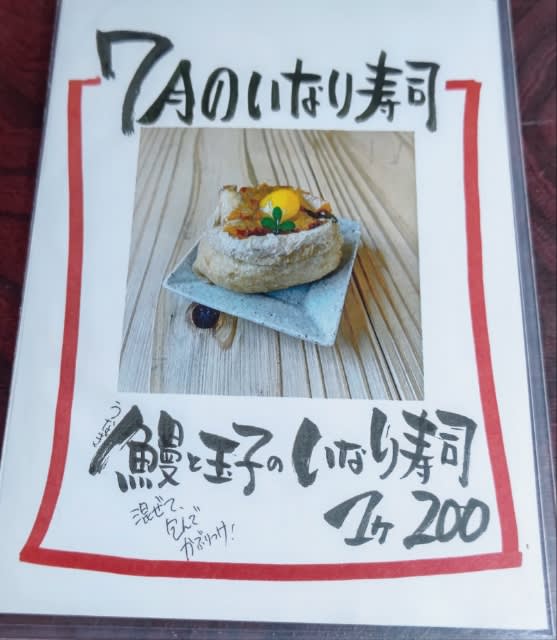 7月のいなり寿司
うなぎ
鰻と玉子のいなり寿司
混ぜて、
包んで
かぶりつけ!
1ケ 200